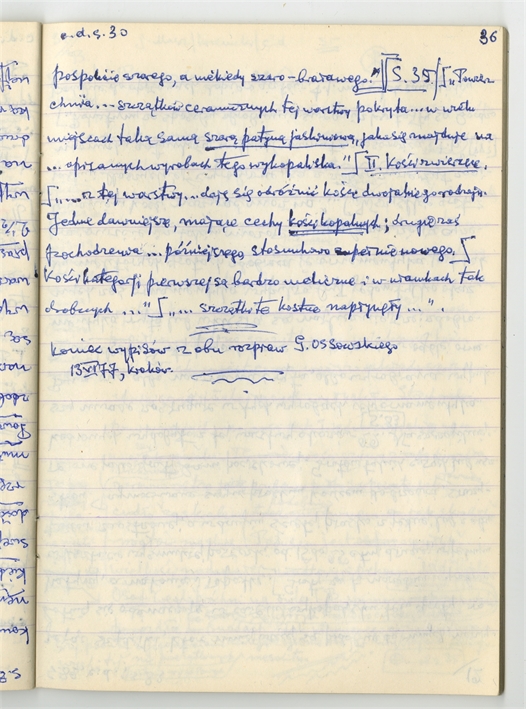 c.d.s. 30
36
pospolicie szarego, a niekiedy szaro-brunatnego." S. 35 "Powierz
chnia... szczątków ceramicznych tej warstwy pokryta... w wielu
miejscach taką samą szarą patyną jaskiniową, jaka się znajduje na
... opisanych wyrobach tego wykopaliska." II. Kości zwierzęce.
"... z tej warstwy... dają się odróżnić kości dwojakiego rodzaju.
Jedne dawniejsze, mające cechy kości kopalnych; drugie zaś
pochodzenia... późniejszego, stosunkowo zupełnie nowego.
Kości kategorji pierwszej są bardzo nieliczne i w ułamkach tak
drobnych ..." "... szczątki te kostne napłynęły ...".
Koniec wypisów z obu rozpraw G. Ossowskiego
13 VI 77, Kraków.